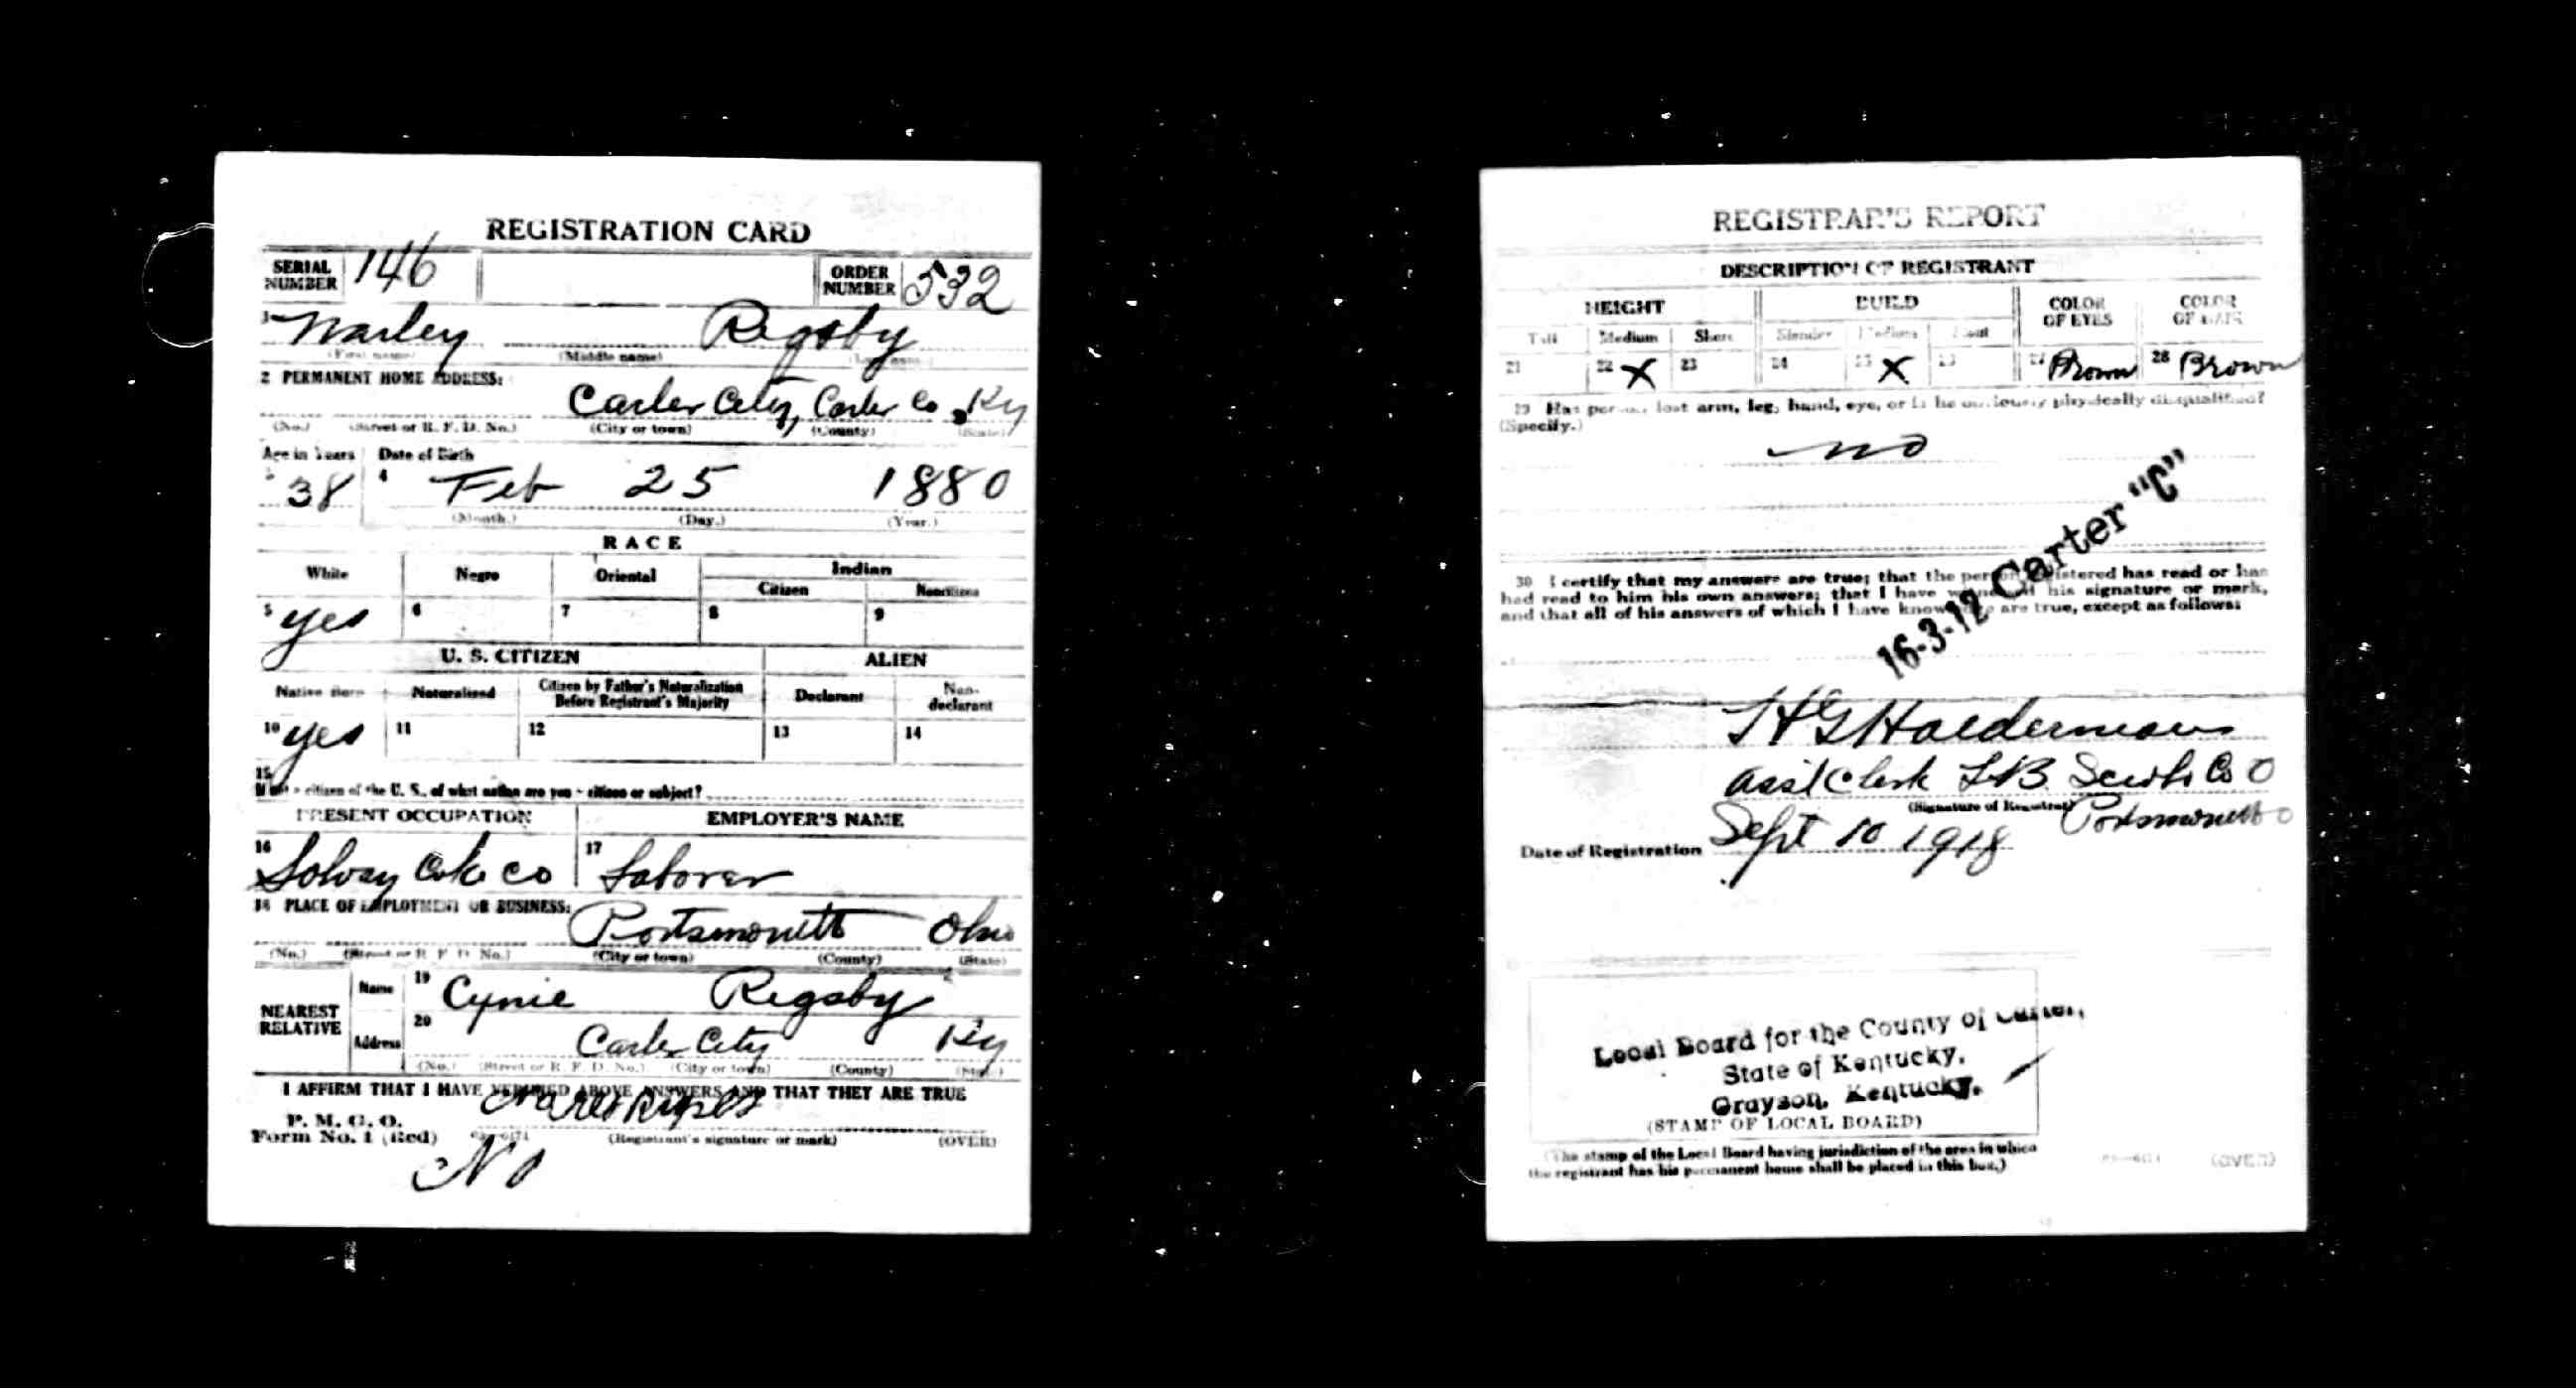 REGISTRATION CARD
SERIAL NUMBER 146 ORDER NUMBER 532
1 Warley Rigsby
(First name) (Middle name) (Last name)
2 PERMANENT HOME ADDRESS:
Carter City, Carter Co, Ky
(No.) (Street or R. F. D. No.) (City or town) (County) (State)
Age in Years Date of Birth
38 4 Feb 25 1880
(Month.) (Day.) (Year.)
RACE
White Negro Oriental Indian
Citizen Noncitizen
5 yes 6 7 8 9
U. S. CITIZEN ALIEN
Native Born Naturalized Citizen by Father's Naturalization Before Registrant's Majority Declarant Non-declarant
10 yes 11 12 13 14
15
If not a citizen of the U. S., of what nation are you a citizen or subject?
PRESENT OCCUPATION EMPLOYER'S NAME
16 Solvay Coke Co 17 Laborer
18 PLACE OF EMPLOYMENT OR BUSINESS:
Portsmouth Ohio
(No.) (Street or R. F. D. No.) (City or town) (County) (State)
NEAREST RELATIVE
Name 19 Cynie Rigsby
Address 20 Carter City Ky
(No.) (Street or R. F. D. No.) (City or town) (County) (State)
I AFFIRM THAT I HAVE VERIFIED ABOVE ANSWERS AND THAT THEY ARE TRUE
P. M. G. O.
Form No. 1 (Red) (Registrant's signature or mark) (OVER)
REGISTRAR'S REPORT
DESCRIPTION OF REGISTRANT
HEIGHT BUILD COLOR OF EYES COLOR OF HAIR
Tall Medium Short Slender Medium Stout
21 22 X 23 24 25 X 26 27 Brown 28 Brown
29 Has person lost arm, leg, hand, eye, or is he obviously physically disqualified?
(Specify.)
no
30 I certify that my answers are true; that the person registered has read or has
had read to him his own answers; that I have witnessed his signature or mark,
and that all of his answers of which I have knowledge are true, except as follows:
16-3-12 Carter "C"
Asst Clerk L B Scioto Co O
(Signature of Registrar) Portsmouth O
Date of Registration Sept 10 1918
Local Board for the County of Carter,
State of Kentucky,
Grayson, Kentucky.
(STAMP OF LOCAL BOARD)
(The stamp of the Local Board having jurisdiction of the area in which
the registrant has his permanent home shall be placed in this box.)
(OVER)